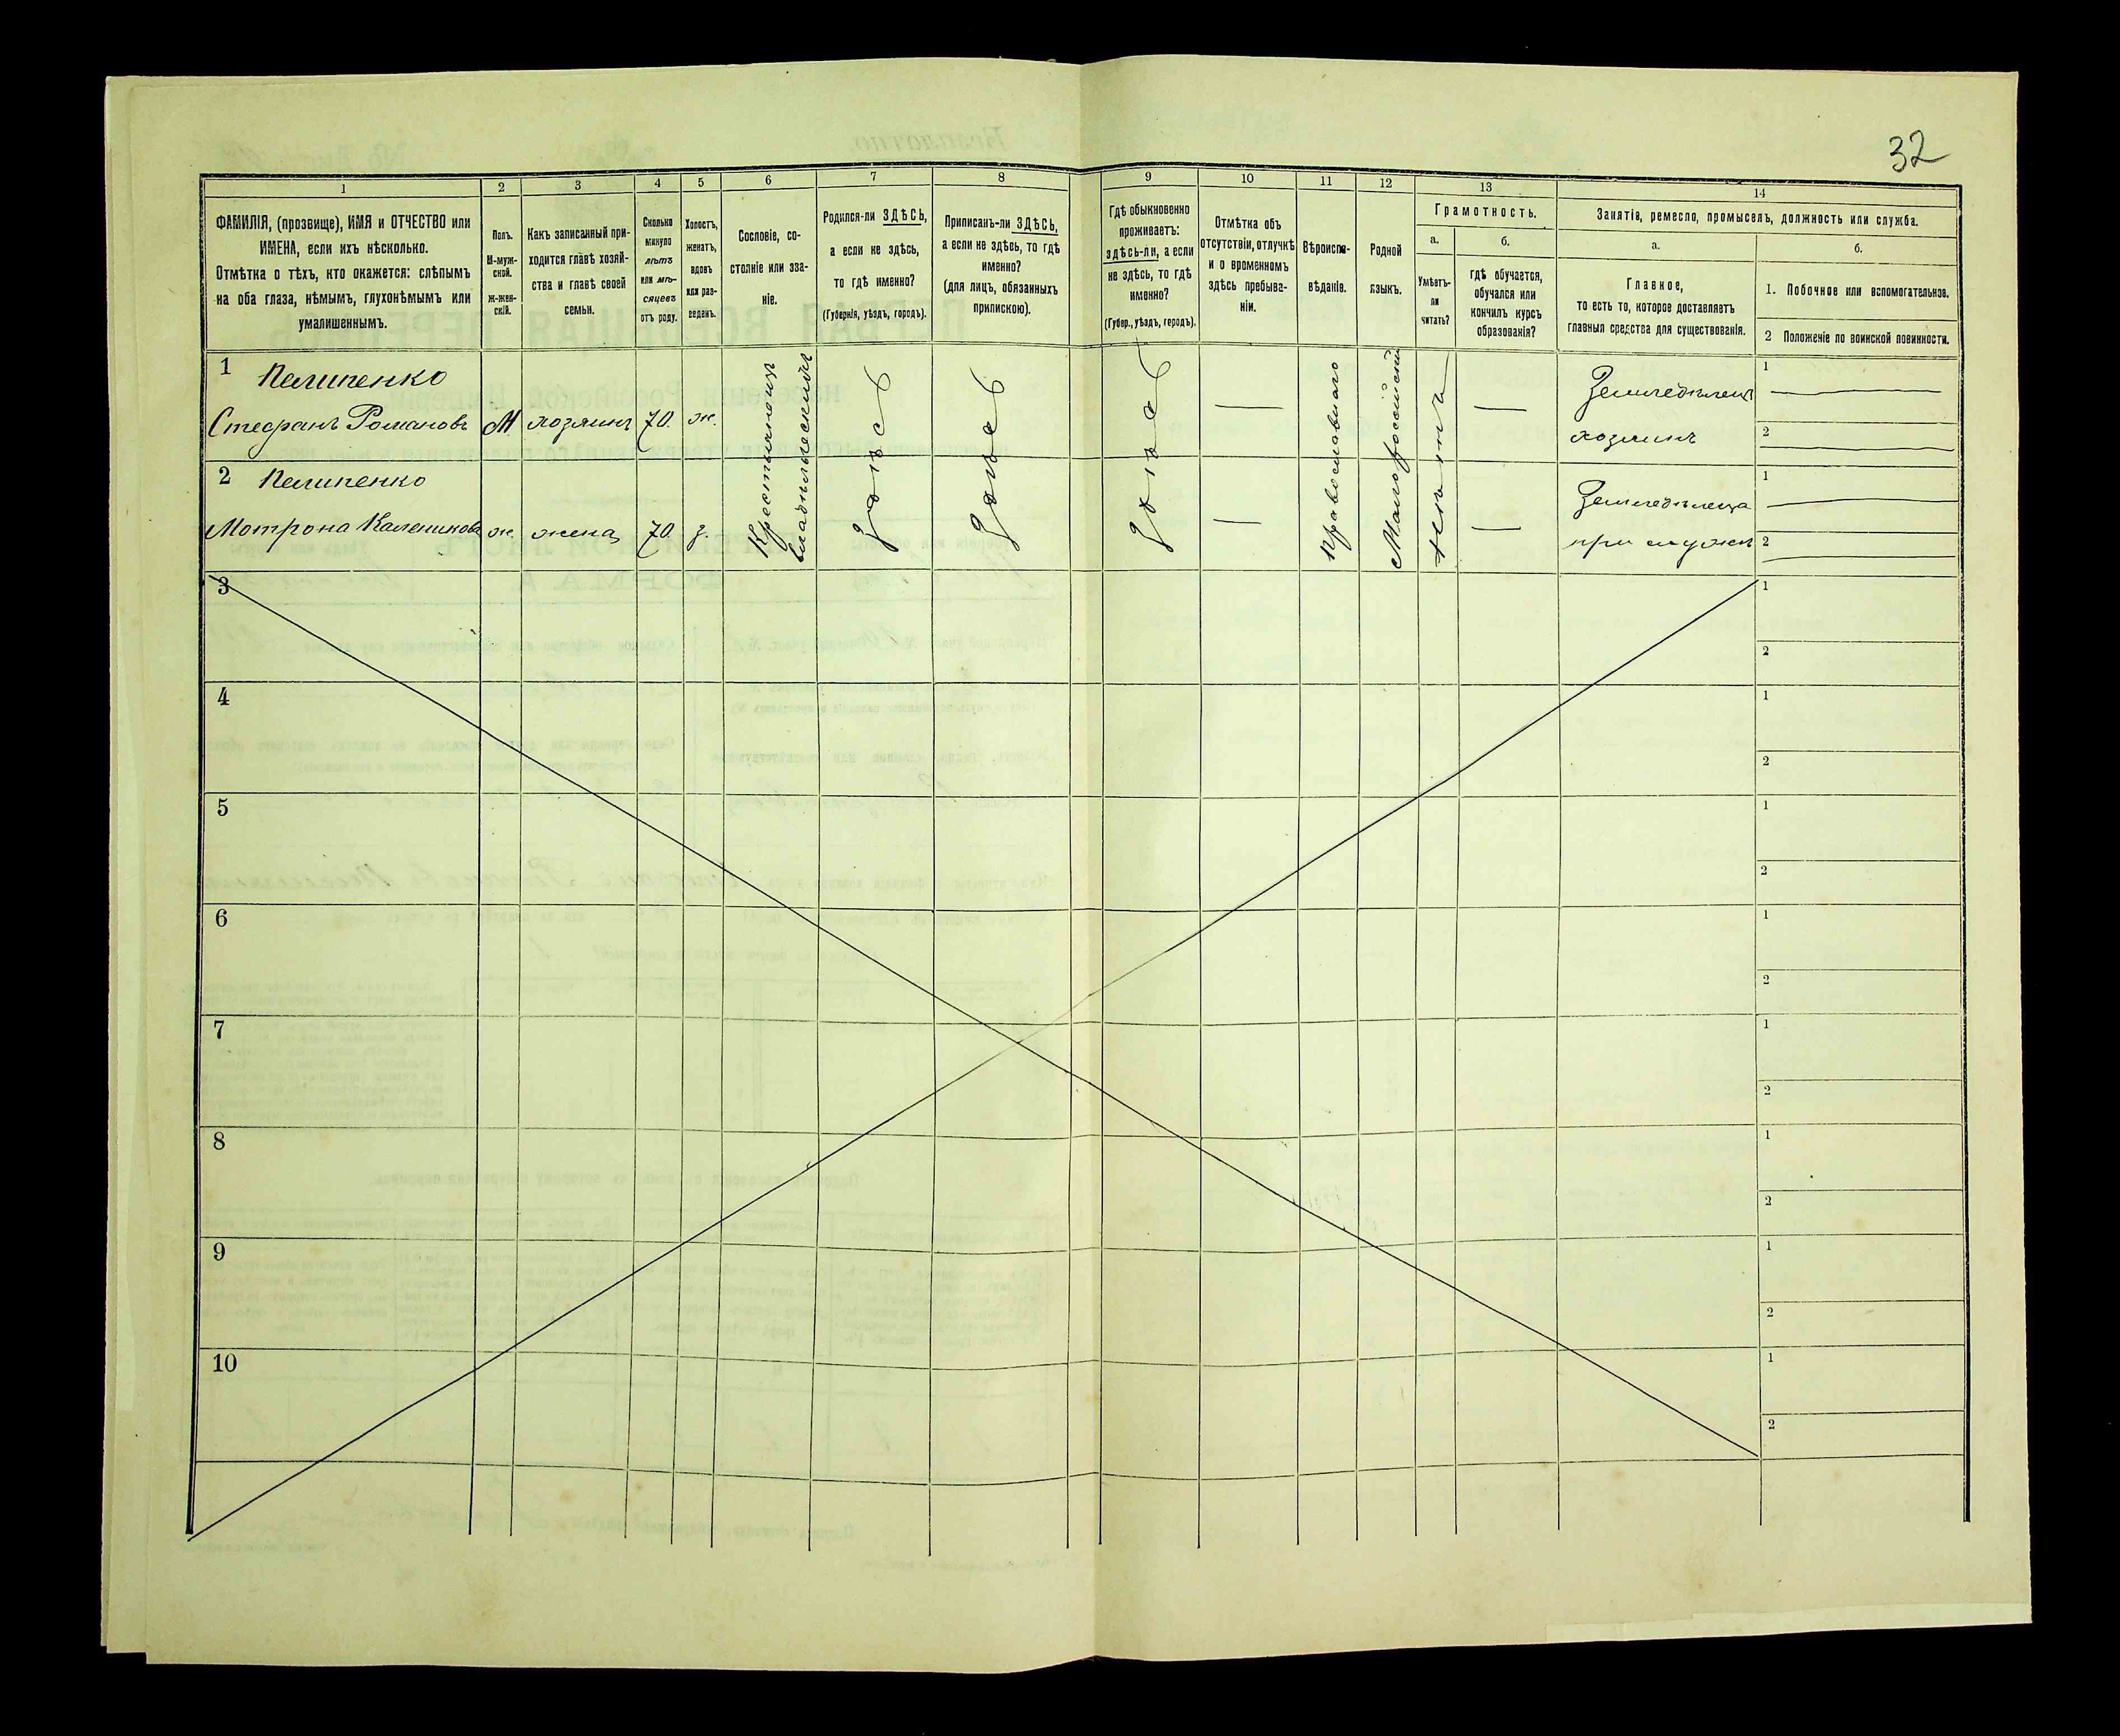 32
1
2
3
4
5
6
7
8
9
10
11
12
13
14
ФАМИЛІЯ, (прозвище), ИМЯ и ОТЧЕСТВО или
ИМЕНА, если ихъ нѣсколько.
Отмѣтка о тѣхъ, кто окажется: слѣпымъ
на оба глаза, нѣмымъ, глухонѣмымъ или
умалишеннымъ.
Полъ.
М-муж-
ской.
ж-жен-
скій.
Какъ записанный при-
ходится главѣ хозяй-
ства и главѣ своей
семьи.
Сколько
минуло
лѣтъ
или мѣ-
сяцевъ
отъ роду.
Холостъ,
женатъ,
вдовъ
или раз-
веденъ.
Сословіе, со-
стояніе или зва-
ніе.
Родился-ли ЗДѢСЬ,
а если не здѣсь,
то гдѣ именно?
(Губернія, уѣздъ, городъ).
Приписанъ-ли ЗДѢСЬ,
а если не здѣсь, то гдѣ
именно?
(для лицъ, обязанныхъ
припискою).
Гдѣ обыкновенно
проживаетъ:
здѣсь-ли, а если
не здѣсь, то гдѣ
именно?
(Губер., уѣздъ, городъ).
Отмѣтка объ
отсутствіи, отлучкѣ
и о временномъ
здѣсь пребыва-
ніи.
Вѣроиспо-
вѣданіе.
Родной
языкъ.
Грамотность.
а.
Умѣетъ-
ли
читать?
б.
гдѣ обучается,
обучался или
кончилъ курсъ
образованія?
Занятіе, ремесло, промыселъ, должность или служба.
а.
Главное,
то есть то, которое доставляетъ
главныя средства для существованія.
б.
1. Побочное или вспомогательное.
2 Положеніе по воинской повинности.
1 Пелипенко
Стефанъ Романовъ М хозяинъ 70. ж.
Крестьянинъ
здѣсь
здѣсь
здѣсь
—
Православнаго
Малороссійскій
нѣтъ
—
Земледѣлецъ
хозяинъ
1
2
2 Пелипенко
Мотрона Каленикова ж. жена 70. з.
—
—
Земледѣлеца
при мужѣ
1
2
3
1
2
4
1
2
5
1
2
6
1
2
7
1
2
8
1
2
9
1
2
10
1
2